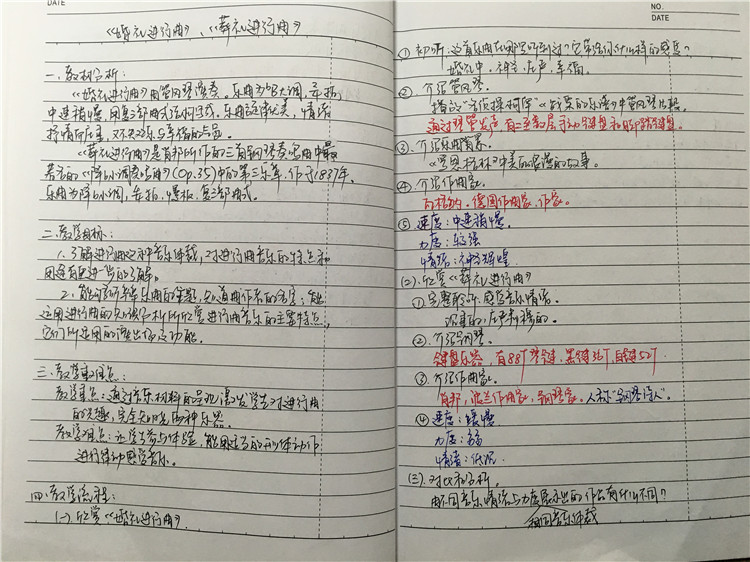 DATE
《婚礼进行曲》、《葬礼进行曲》
一、教材分析:
《婚礼进行曲》用管风琴演奏。乐曲为B大调,四拍,
中速稍慢,用复三部曲式结构写成,乐曲旋律优美,情绪
抒情而庄重,又不失欢乐与幸福的气氛。
《葬礼进行曲》是肖邦所作的三首钢琴奏鸣曲中最
著名的《降b小调奏鸣曲》(Op.35)中的第三乐章,作于1837年,
乐曲为降b小调,四拍,慢板,复三部曲式。
二、教学目标:
1、了解进行曲这种音乐体裁,对进行曲音乐的特点和
用途有更进一步的了解。
2、能听辨每单乐曲的主题,知道曲作者的名字;能
运用进行曲的知识分析所欣赏进行曲音乐的主要特点,
它们所运用的演出场及功能。
三、教学重难点:
教学重点:通过音乐材料的呈现,激发学生对进行曲
的兴趣,完全知晓两种乐器。
教学难点:让学生参与体验,能用适当的形体动作
进行律动感受音乐。
四、教学流程:
(一)、欣赏《婚礼进行曲》。
NO.
DATE
① 初听:这首乐曲在哪里听到过?它带给你什么样的感觉?
婚礼中。神圣、庄严、幸福。
②. 介绍管风琴。
通过琴管发声,有二至数层手动键盘和脚踏键盘。
③. 介绍乐曲背景。
④. 介绍作曲家。
瓦格纳。德国作曲家,作家。
⑤ 速度:中速稍慢。
力度:较强
情绪:神圣辉煌
(二)、欣赏《葬礼进行曲》
①. 完整聆听,感受音乐情绪。
沉重的,庄严肃穆的。
②. 介绍钢琴。
键盘乐器,有88个琴键,黑键36个,白键52个
③. 介绍作曲家。
肖邦,波兰作曲家,钢琴家。人称“钢琴诗人”。
④ 速度:缓慢
力度:弱
情绪:低沉
(三)、对比和分析。
用不同音乐情绪与力度展示出的作品有什么不同?
相同音乐体裁